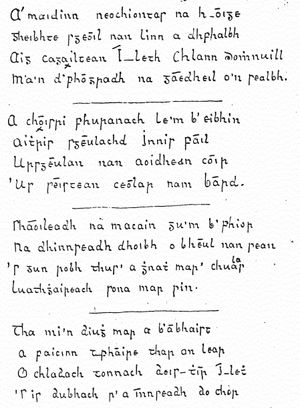 A' maidinn neochiontas na h-ōige
gheibhte sgeōil nan linn a dhfhalbh
Aig cagailtean Ī-leth Chlann Domnuill
M'a'n d'fhōgradh na gāedheil o'n sealbh.
A chōisri le'm b'eibhin
Aithris sgēulachd Innis Fāil
Ursgēulan nan aoidhean cōir
'Us ceōlar nam bārd.
Shāoileadh na macain gu'm b'fhior
Na dhinnseadh dhoibh o bhēul nan sean
'S gun robh thus' a gnāt mar' chuala
luathghaireach rona mar sin.
Tha mi'n diugh mar a b'ābhaist
a faicinn thar an lear
O chladach tonnach deis-tīr Ī-let
'S is dubhach r' a innseadh do chor